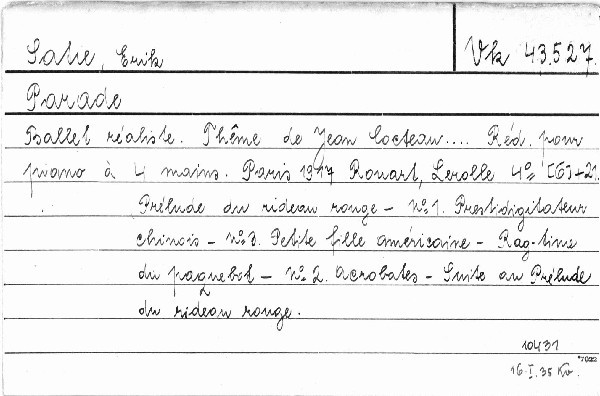 Satie, Erik
Vk 43.527.
Parade
Ballet réaliste. Thême de Jean Cocteau.... Réd. pour
piano à 4 mains. Paris 1917 Rouart, Lerolle 4º= [6]+21.
Prélude du rideau rouge - Nº1. Prestidigitateur
chinois - Nº3. Petite fille américaine - Rag-time
du paquebot - Nº2. Acrobates - Suite au Prélude
du rideau rouge.
10431
*7022
16.I.35 Kv.